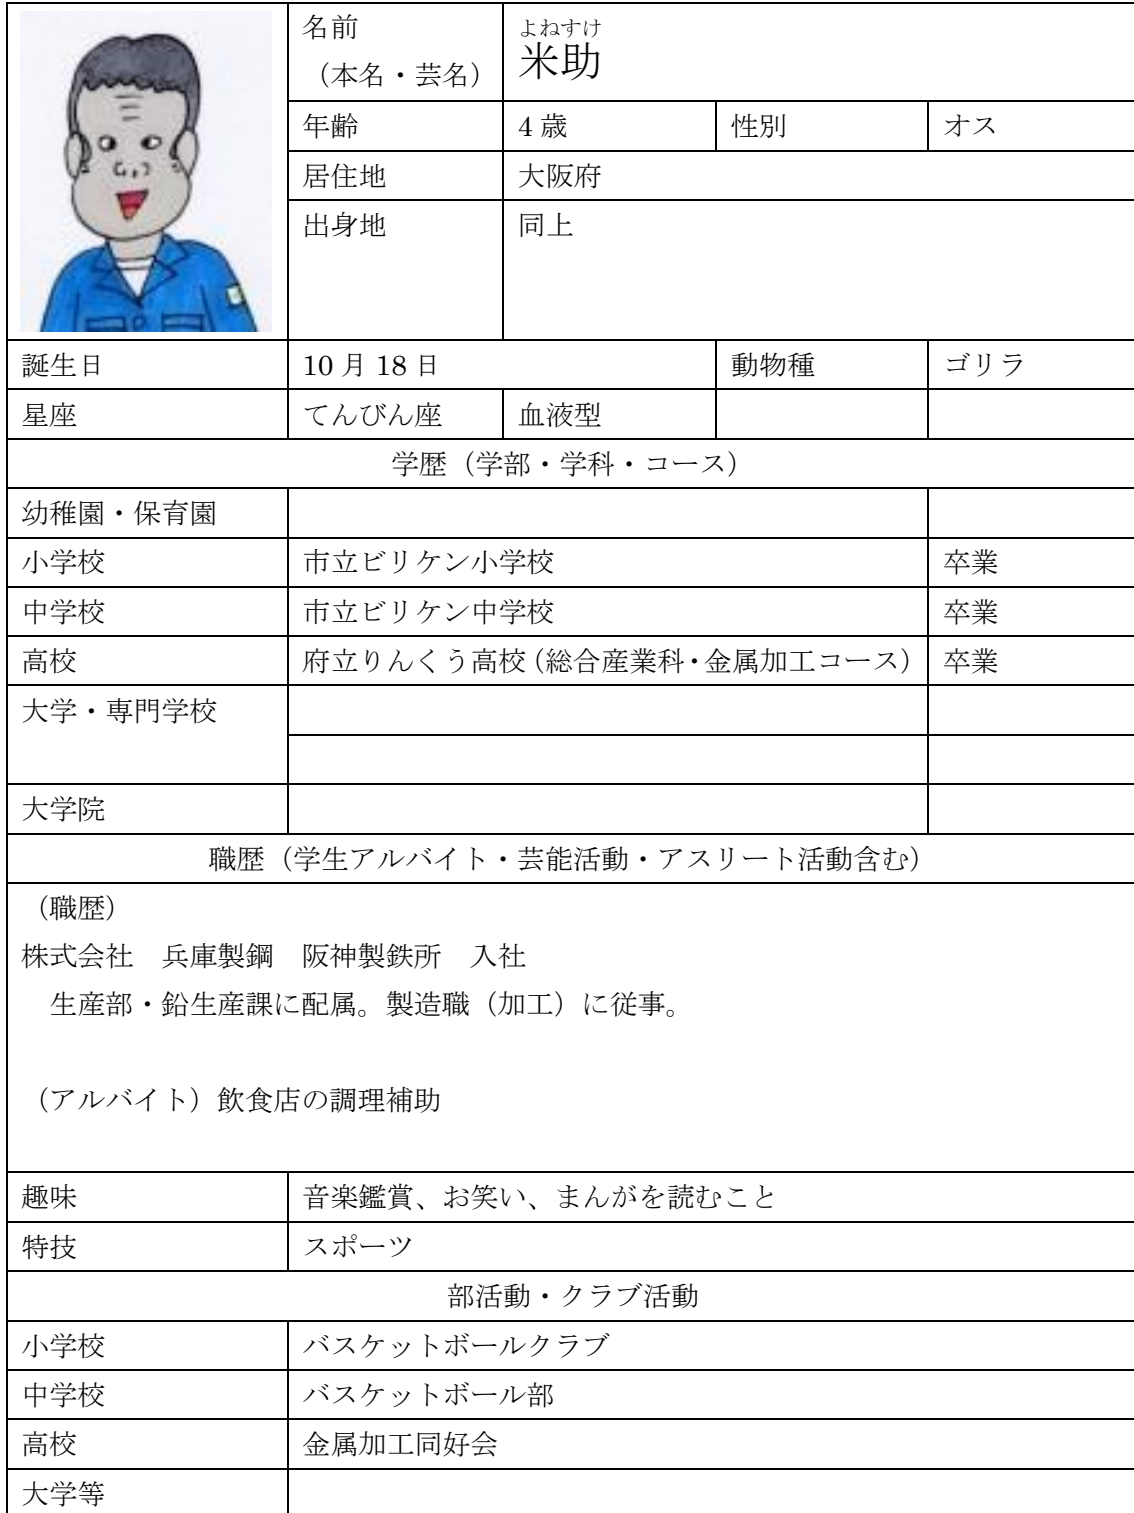 名前 よねすけ
（本名・芸名） 米助
年齢 4歳 性別 オス
居住地 大阪府
出身地 同上
誕生日 10月18日 動物種 ゴリラ
星座 てんびん座 血液型
学歴（学部・学科・コース）
幼稚園・保育園
小学校 市立ビリケン小学校 卒業
中学校 市立ビリケン中学校 卒業
高校 府立りんくう高校（総合産業科・金属加工コース） 卒業
大学・専門学校
大学院
職歴（学生アルバイト・芸能活動・アスリート活動含む）
（職歴）
株式会社　兵庫製鋼　阪神製鉄所　入社
　生産部・鉛生産課に配属。製造職（加工）に従事。
（アルバイト）飲食店の調理補助
趣味 音楽鑑賞、お笑い、まんがを読むこと
特技 スポーツ
部活動・クラブ活動
小学校 バスケットボールクラブ
中学校 バスケットボール部
高校 金属加工同好会
大学等